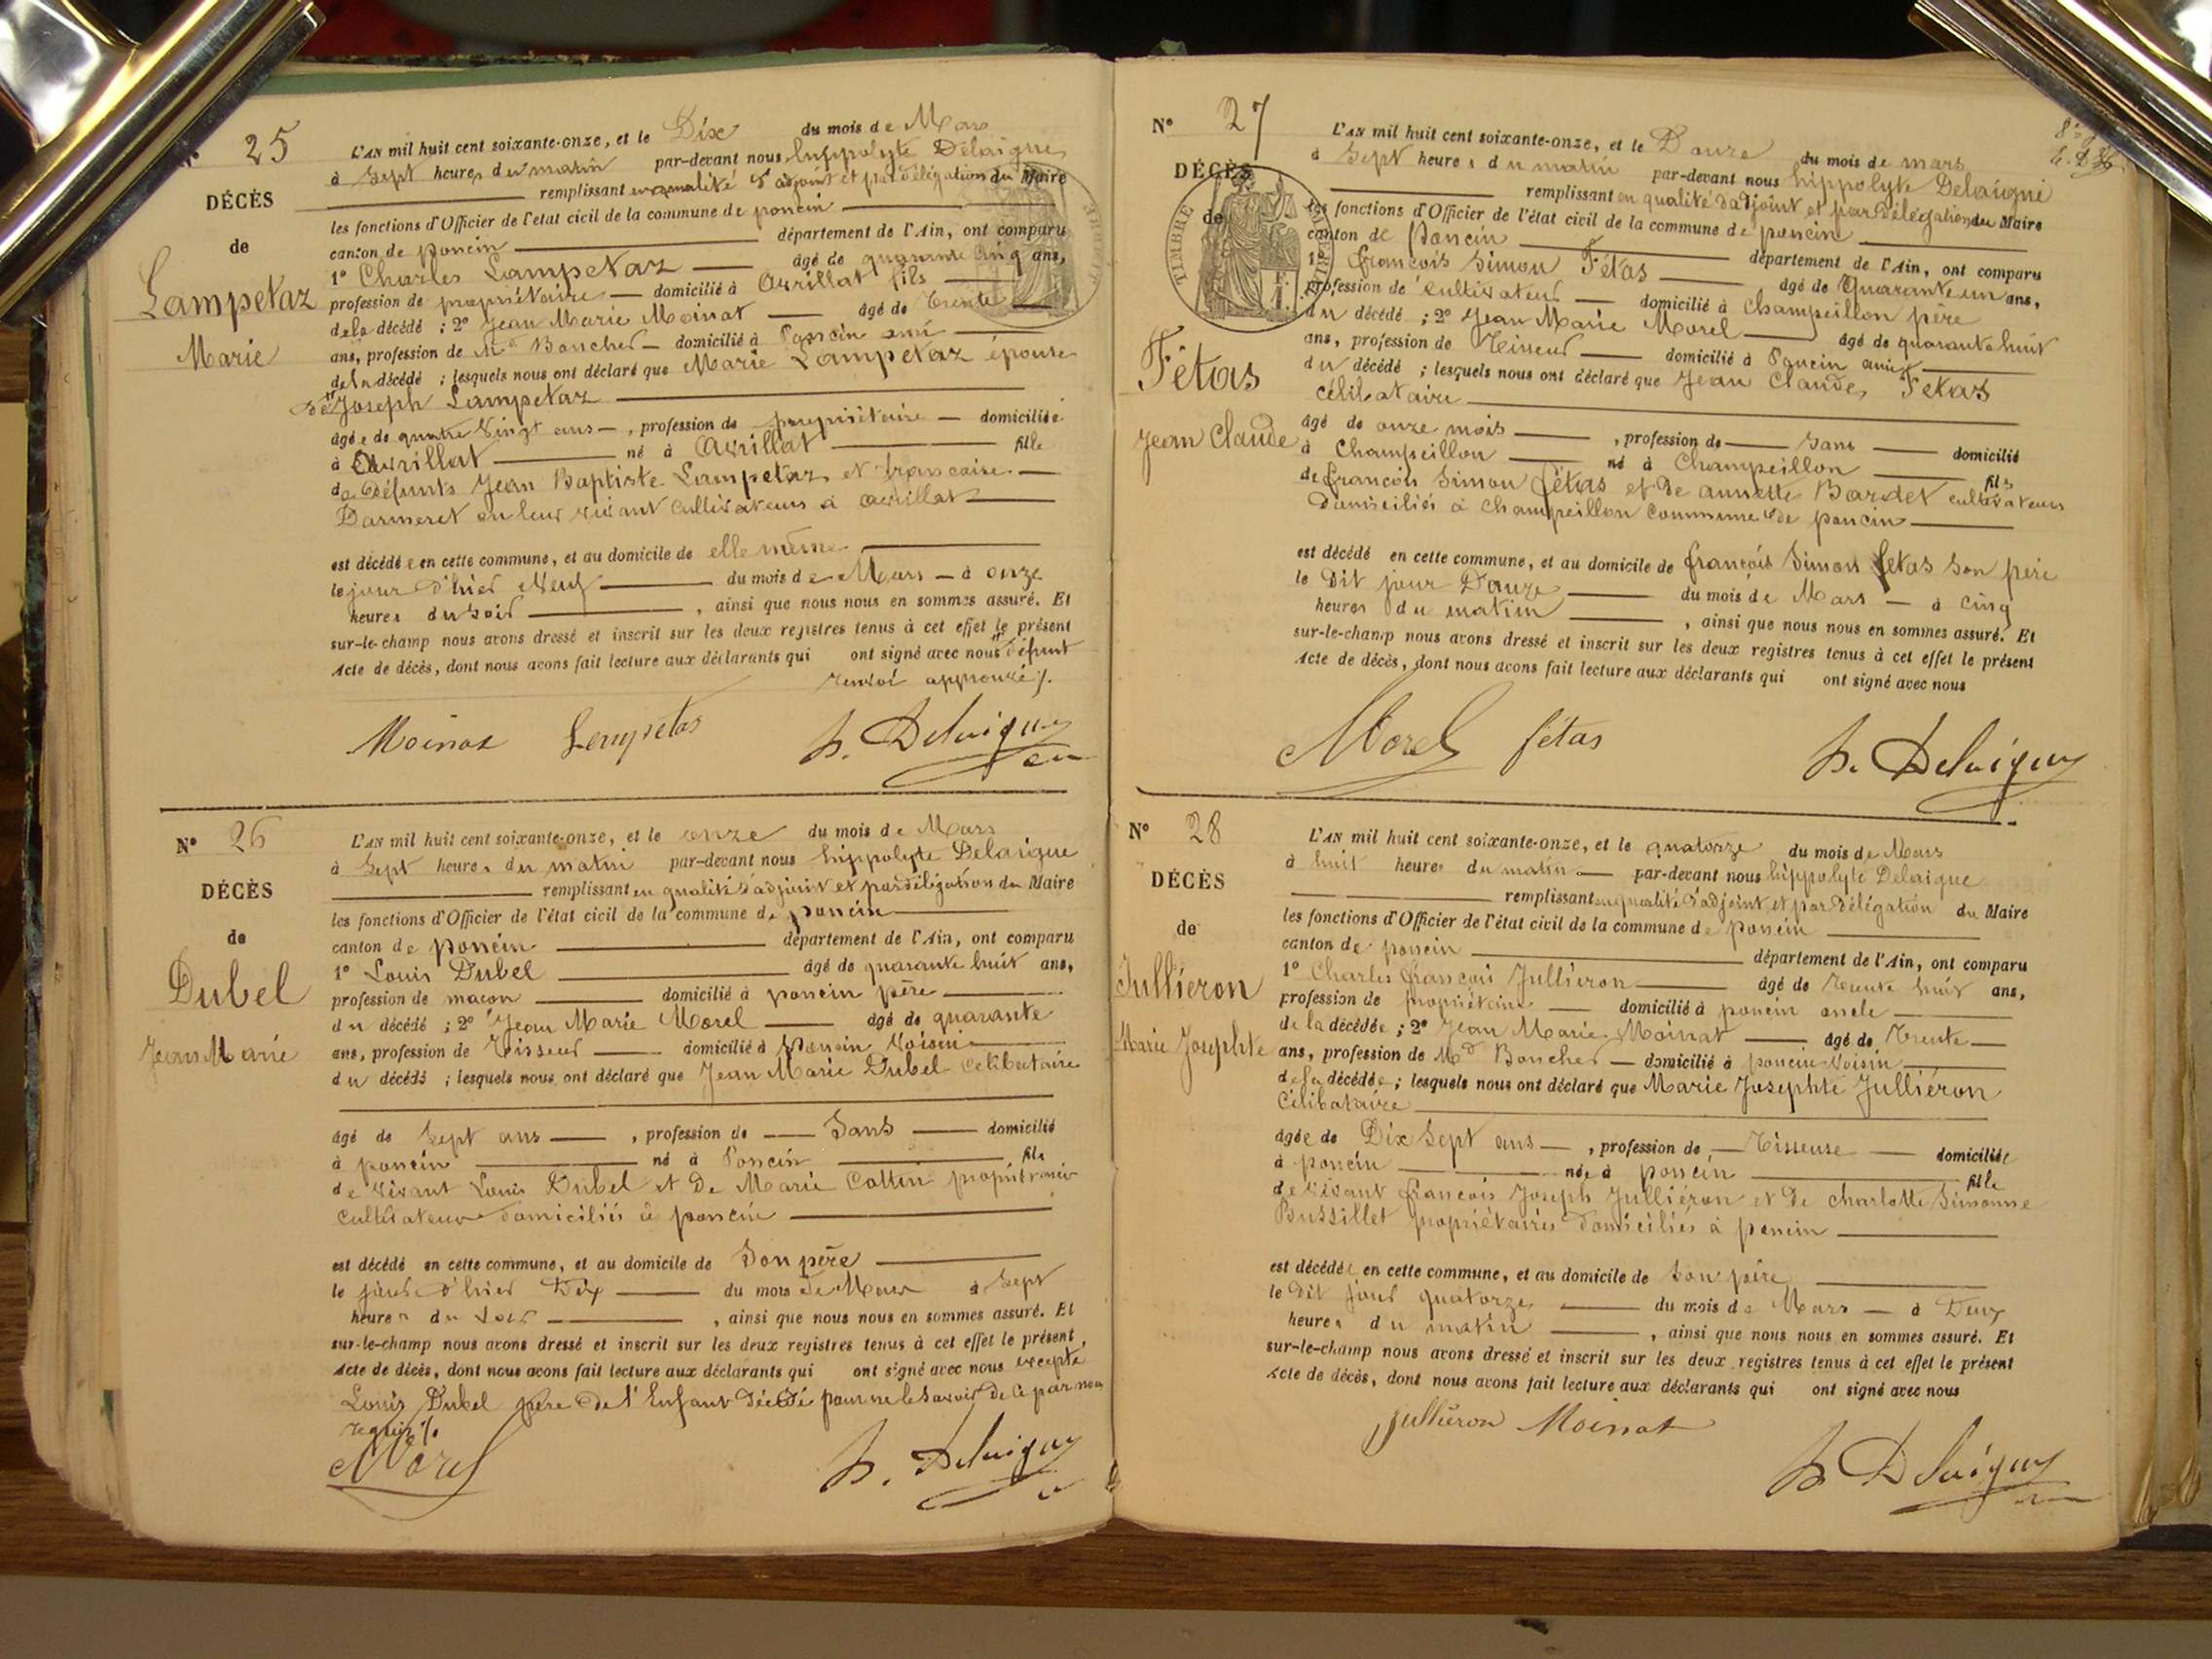 N° 25
DÉCÈS
de
Lampetaz
Marie
L'AN mil huit cent soixante-onze, et le Dix du mois de Mars
à Sept heures du matin par-devant nous hippolyte Delaigue
remplissant en qualité d'adjoint et par délégation du Maire
les fonctions d'Officier de l'état civil de la commune de poncin
canton de poncin département de l'Ain, ont comparu
1° Charles Lampetaz âgé de quarante cinq ans,
profession de propriétaire domicilié à Avrillat fils
de la décédé ; 2° Jean Marie Moinat âgé de trente
ans, profession de Md Boucher domicilié à Poncin ami
de la décédé ; lesquels nous ont déclaré que Marie Lampetaz épouse
de Joseph Lampetaz
âgée de quatre vingt ans, profession de propriétaire domiciliée
à Avrillat né à Avrillat fille
de défunts Jean Baptiste Lampetaz et françoise
Darmeret en leur vivant cultivateurs à avrillat
est décédée en cette commune, et au domicile de elle même
le jour d'hier Neuf du mois de Mars à onze
heures du soir, ainsi que nous nous en sommes assuré. Et
sur-le-champ nous avons dressé et inscrit sur les deux registres tenus à cet effet le présent
Acte de décès, dont nous avons fait lecture aux déclarants qui ont signé avec nous défunt
renvoi approuvé
Moinat Lampetas h. Delaigue
N° 26
DÉCÈS
de
Dubel
Jean Marie
L'AN mil huit cent soixante-onze, et le onze du mois de Mars
à Sept heures du matin par-devant nous hippolyte Delaigue
remplissant en qualité d'adjoint et par délégation du Maire
les fonctions d'Officier de l'état civil de la commune de poncin
canton de poncin département de l'Ain, ont comparu
1° Louis Dubel âgé de quarante huit ans,
profession de maçon domicilié à poncin père
du décédé ; 2° Jean Marie Morel âgé de quarante
ans, profession de Tisseur domicilié à Poncin Voisin
du décédé ; lesquels nous ont déclaré que Jean Marie Dubel Celibataire
âgé de Sept ans, profession de Sans domicilié
à poncin né à Poncin fils
de vivant Louis Dubel et de Marie Cottin
cultivateurs domiciliés à poncin
est décédé en cette commune, et au domicile de Son père
le jour d'hier Dix du mois de Mars à Sept
heures du Soir, ainsi que nous nous en sommes assuré. Et
sur-le-champ nous avons dressé et inscrit sur les deux registres tenus à cet effet le présent
Acte de décès, dont nous avons fait lecture aux déclarants qui ont signé avec nous excepté
Louis Dubel père de l'Enfant décédé pour ne le Savoir de ce par nous
requis
Morel h. Delaigue
N° 27
DÉCÈS
de
TIMBRE
Fétas
Jean Claude
L'AN mil huit cent soixante-onze, et le Douze du mois de mars
à Sept heures du matin par-devant nous hippolyte Delaigue
remplissant en qualité d'adjoint et par délégation du Maire
les fonctions d'Officier de l'état civil de la commune de poncin
canton de Poncin département de l'Ain, ont comparu
1° françois Simon Fétas âgé de Quarante un ans,
profession de cultivateur domicilié à Champeillon père
du décédé ; 2° Jean Marie Morel âgé de quarante huit
ans, profession de Tisseur domicilié à Poncin ami
du décédé ; lesquels nous ont déclaré que Jean Claude Fetas
célibataire
âgé de onze mois, profession de Sans domicilié
à Champeillon né à Champeillon fils
de françois Simon fétas et de annette Bardet cultivateurs
domiciliés à Champeillon Commune de poncin
est décédé en cette commune, et au domicile de françois Simon fetas Son père
le Dit jour Douze du mois de Mars à cinq
heures du matin, ainsi que nous nous en sommes assuré. Et
sur-le-champ nous avons dressé et inscrit sur les deux registres tenus à cet effet le présent
Acte de décès, dont nous avons fait lecture aux déclarants qui ont signé avec nous
Morel fétas h. Delaigue
N° 28
DÉCÈS
de
Jullieron
Marie Josephte
L'AN mil huit cent soixante-onze, et le quatorze du mois de Mars
à huit heures du matin par-devant nous hippolyte Delaigue
remplissant en qualité d'adjoint et par délégation du Maire
les fonctions d'Officier de l'état civil de la commune de poncin
canton de poncin département de l'Ain, ont comparu
1° Charles françois Jullieron âgé de trente huit ans,
profession de propriétaire domicilié à poncin oncle
de la décédée ; 2° Jean Marie Moinat âgé de Trente
ans, profession de Md Boucher domicilié à poncin Voisin
de la décédée ; lesquels nous ont déclaré que Marie Josephte Julliéron
Célibataire
âgée de Dix Sept ans, profession de Tisseuse domiciliée
à poncin née à poncin fille
de vivant françois Joseph Julliéron et de Charlotte Simonne
Bussillet propriétaires domiciliés à poncin
est décédée en cette commune, et au domicile de Son père
le Dit jour quatorze du mois de Mars à Deux
heures du matin, ainsi que nous nous en sommes assuré. Et
sur-le-champ nous avons dressé et inscrit sur les deux registres tenus à cet effet le présent
Acte de décès, dont nous avons fait lecture aux déclarants qui ont signé avec nous
Julliéron Moinat
h. Delaigue